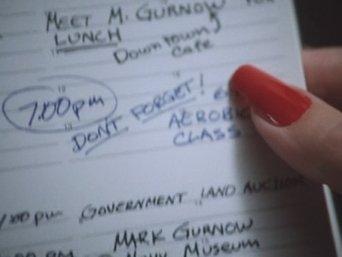 MEET M. GURNOW
LUNCH
DOWNTOWN
CAFE
7:00 pm
DONT FORGET!
AEROBIC
CLASS
GOVERNMENT LAND AUCTION
MARK GURNOW
MUSEUM